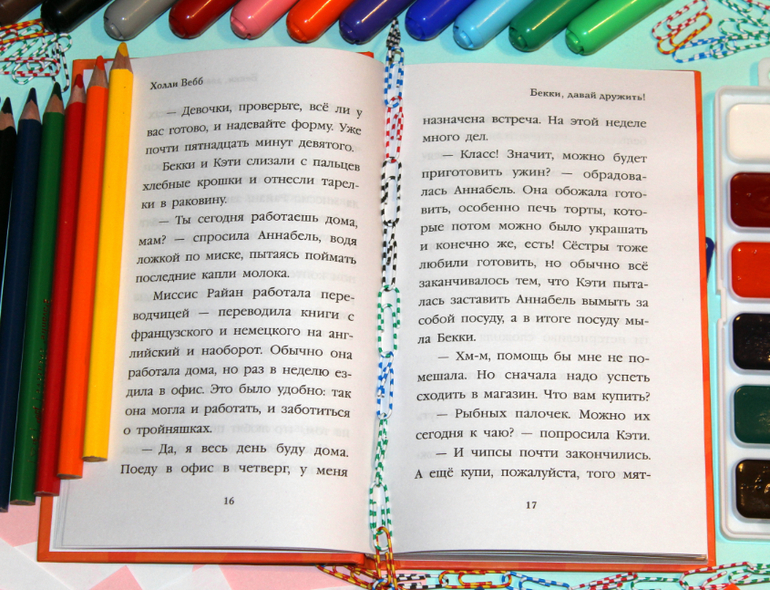 Холли Вебб
— Девочки, проверьте, всё ли у
вас готово, и надевайте форму. Уже
почти пятнадцать минут девятого.
Бекки и Кэти слизали с пальцев
хлебные крошки и отнесли тарел-
ки в раковину.
— Ты сегодня работаешь дома,
мам? — спросила Аннабель, водя
ложкой по миске, пытаясь поймать
последние капли молока.
Миссис Райан работала пере-
водчицей — переводила книги с
французского и немецкого на анг-
лийский и наоборот. Обычно она
работала дома, но раз в неделю ез-
дила в офис. Это было удобно: так
она могла и работать, и заботиться
о тройняшках.
— Да, я весь день буду дома.
Поеду в офис в четверг, у меня
16
Бекки, давай дружить!
назначена встреча. На этой неделе
много дел.
— Класс! Значит, можно будет
приготовить ужин? — обрадова-
лась Аннабель. Она обожала гото-
вить, особенно печь торты, кото-
рые потом можно было украшать
и конечно же, есть! Сёстры тоже
любили готовить, но обычно всё
заканчивалось тем, что Кэти пыта-
лась заставить Аннабель вымыть за
собой посуду, а в итоге посуду мы-
ла Бекки.
— Хм-м, помощь бы мне не по-
мешала. Но сначала надо успеть
сходить в магазин. Что вам купить?
— Рыбных палочек. Можно их
сегодня к чаю? — попросила Кэти.
— И чипсы почти закончились.
А ещё купи, пожалуйста, того мят-
17